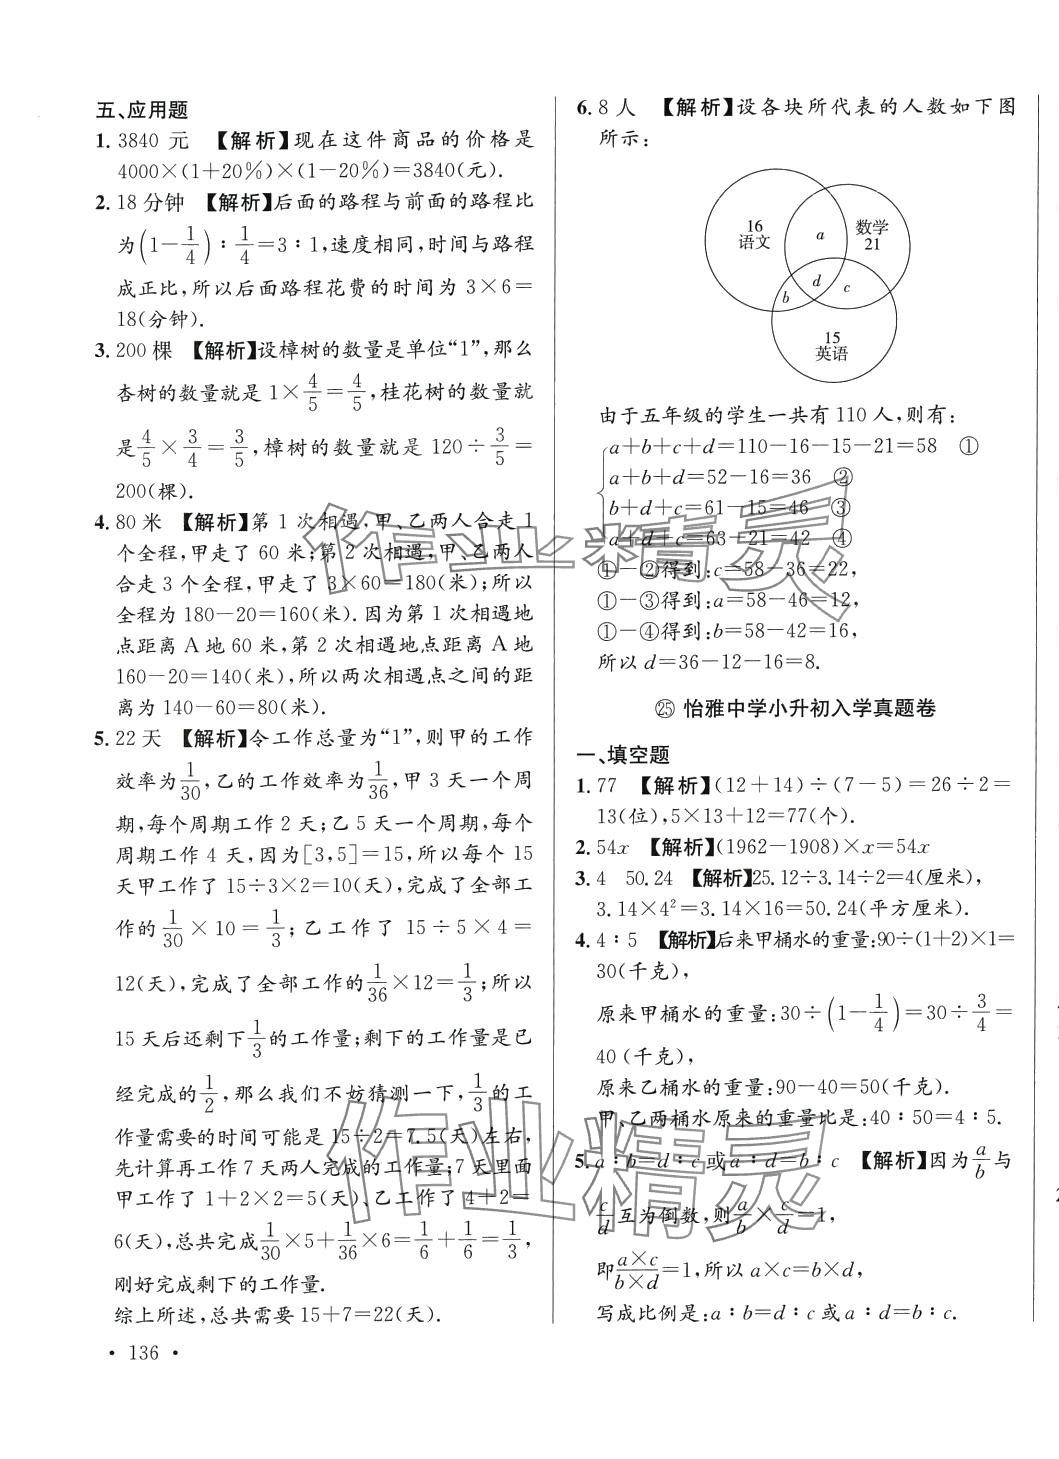 五、应用题
1. 3840 元 【解析】现在这件商品的价格是
4000×(1+20%)×(1-20%)=3840(元).
2. 18 分钟 【解析】后面的路程与前面的路程比
为(1-1/4)∶1/4=3∶1,速度相同,时间与路程
成正比,所以后面路程花费的时间为 3×6=
18(分钟).
3. 200 棵 【解析】设樟树的数量是单位“1”,那么
杏树的数量就是 1×4/5=4/5,桂花树的数量就
是4/5×3/4=3/5,樟树的数量就是 120÷3/5=
200(棵).
4. 80 米 【解析】第 1 次相遇,甲、乙两人合走 1
个全程,甲走了 60 米;第 2 次相遇,甲、乙两人
合走 3 个全程,甲走了 3×60=180(米);所以
全程为 180-20=160(米).因为第 1 次相遇地
点距离 A 地 60 米,第 2 次相遇地点距离 A 地
160-20=140(米),所以两次相遇点之间的距
离为 140-60=80(米).
5. 22 天 【解析】令工作总量为“1”,则甲的工作
效率为1/30,乙的工作效率为1/36,甲 3 天一个周
期,每个周期工作 2 天;乙 5 天一个周期,每个
周期工作 4 天,因为[3,5]=15,所以每个 15
天甲工作了 15÷3×2=10(天),完成了全部工
作的1/30×10=1/3;乙工作了 15÷5×4=
12(天),完成了全部工作的1/36×12=1/3;所以
15 天后还剩下1/3的工作量;剩下的工作量是已
经完成的1/2,那么我们不妨猜测一下,1/3的工
作量需要的时间可能是 15÷2=7.5(天)左右,
先计算再工作 7 天两人完成的工作量;7 天里面
甲工作了 1+2×2=5(天)、乙工作了 4+2=
6(天),总共完成1/30×5+1/36×6=1/6+1/6=1/3,
刚好完成剩下的工作量.
综上所述,总共需要 15+7=22(天).
• 136 •
6. 8 人 【解析】设各块所代表的人数如下图
所示:
16
语文
a
数学
21
d
b
c
15
英语
由于五年级的学生一共有 110 人,则有:
a+b+c+d=110-16-15-21=58 ①
a+b+d=52-16=36 ②
b+d+c=61-15=46 ③
a+d+c=63-21=42 ④
①-②得到:c=58-36=22,
①-③得到:a=58-46=12,
①-④得到:b=58-42=16,
所以 d=36-12-16=8.
㉕ 怡雅中学小升初入学真题卷
一、填空题
1. 77 【解析】(12+14)÷(7-5)=26÷2=
13(位),5×13+12=77(个).
2. 54x 【解析】(1962-1908)×x=54x
3. 4 50.24 【解析】25.12÷3.14÷2=4(厘米),
3.14×4²=3.14×16=50.24(平方厘米).
4. 4∶5 【解析】后来甲桶水的重量:90÷(1+2)×1=
30(千克),
原来甲桶水的重量:30÷(1-1/4)=30÷3/4=
40(千克),
原来乙桶水的重量:90-40=50(千克).
甲、乙两桶水原来的重量比是:40∶50=4∶5.
5. a∶b=d∶c 或 a∶d=b∶c 【解析】因为a/b与
c/d互为倒数,则a/b×c/d=1,
即(a×c)/(b×d)=1,所以 a×c=b×d,
写成比例是:a∶b=d∶c 或 a∶d=b∶c.
作业精灵
作业精灵